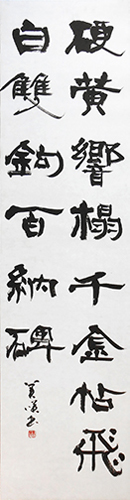 硬黄響榻千金帖飛
白雙鉤百衲碑